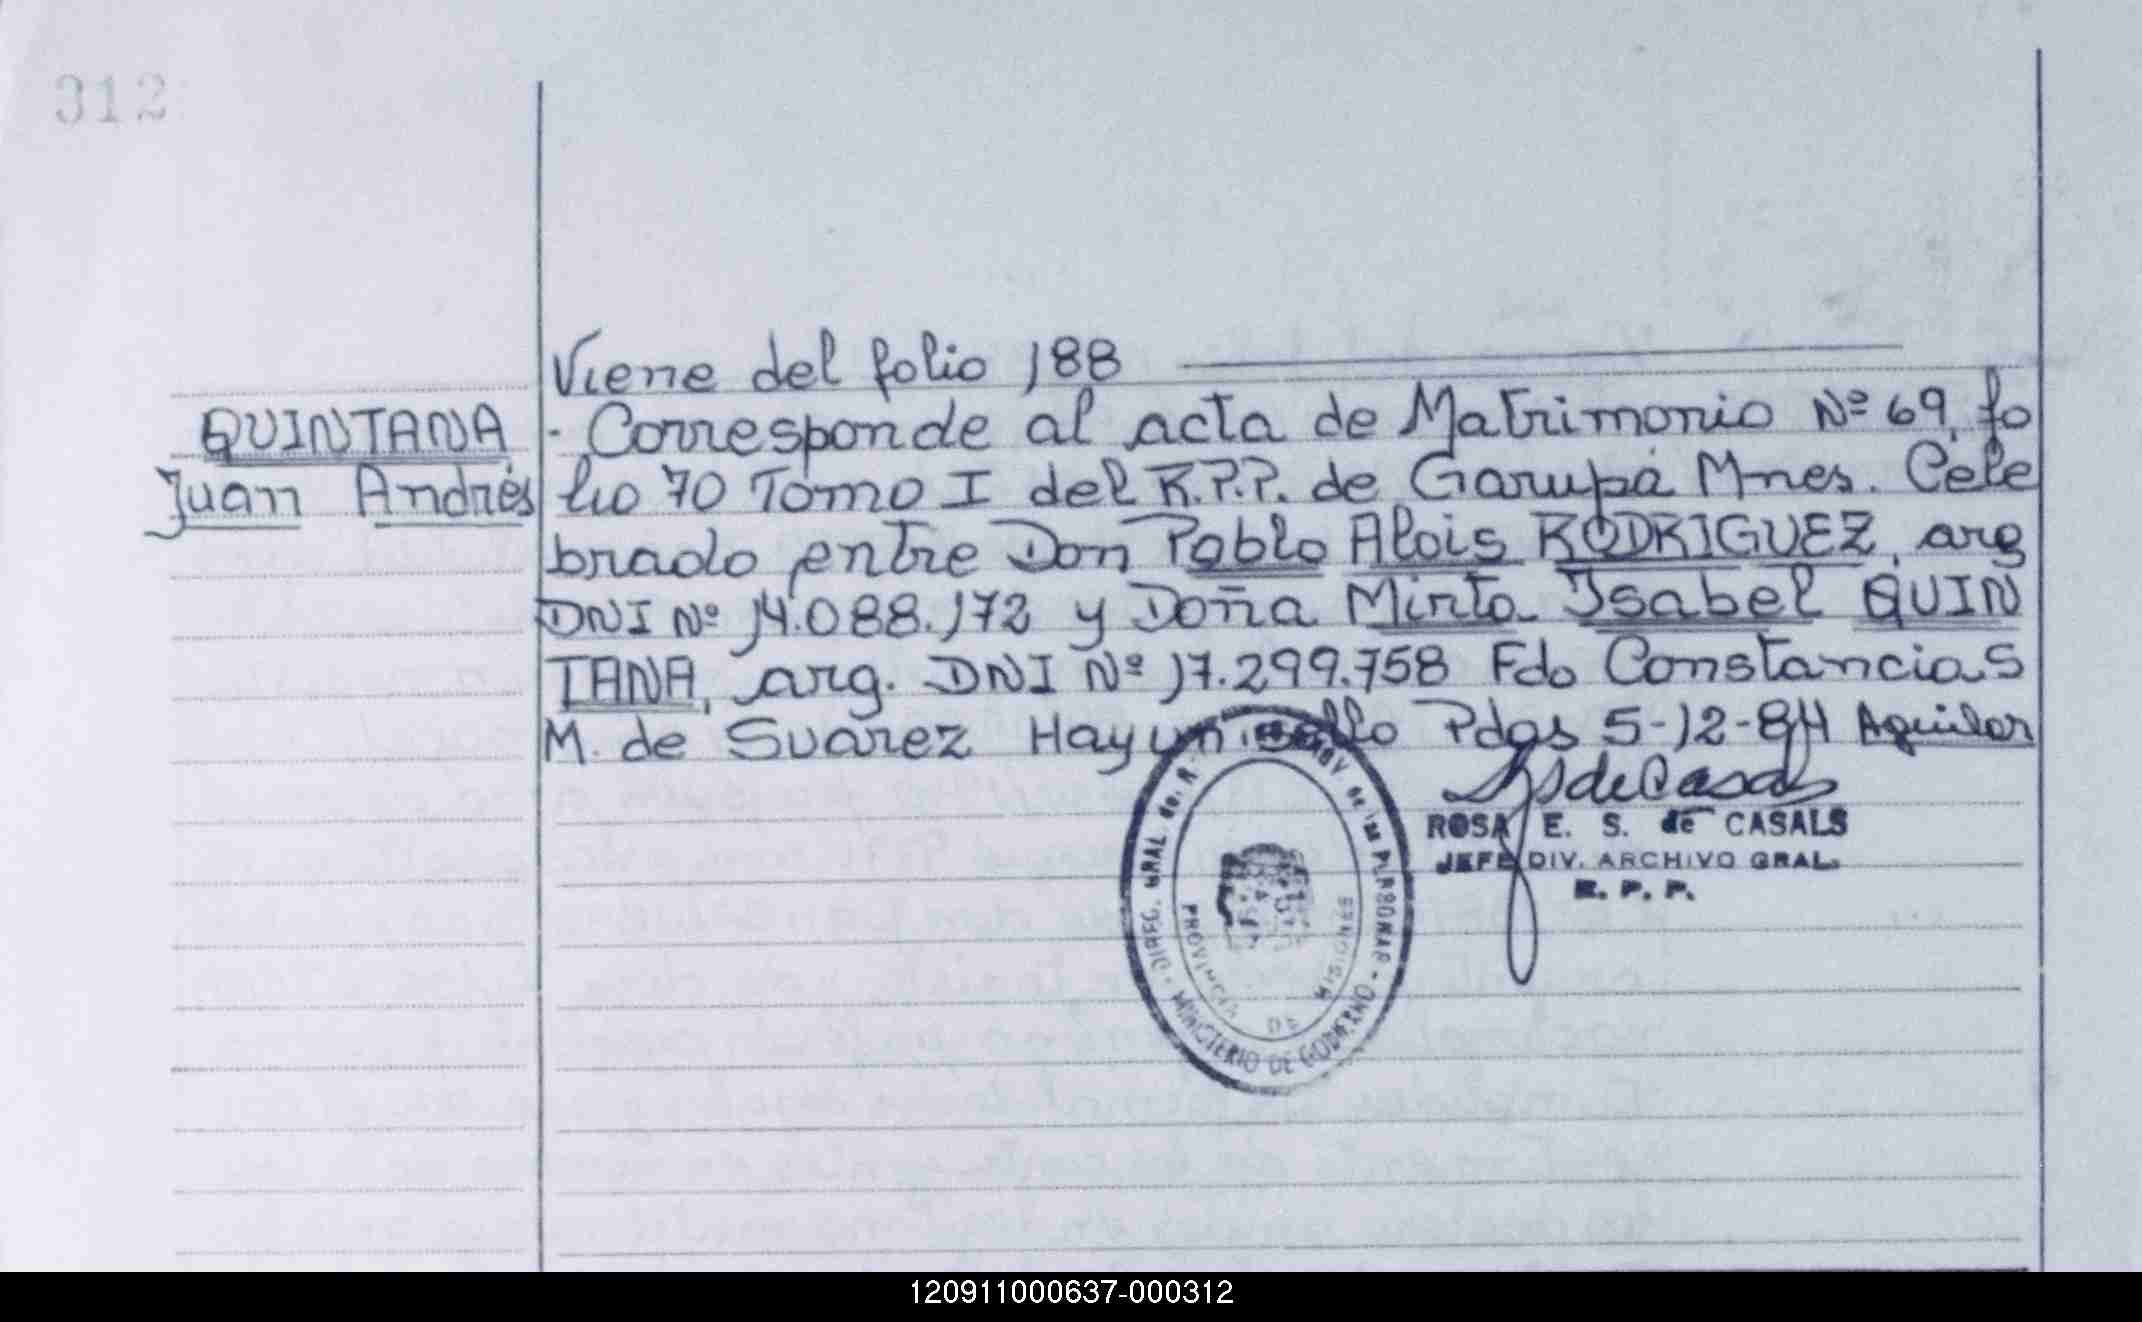 312
Viene del folio 188
QUINTANA
Juan Andrés
. Corresponde al acta de Matrimonio Nº 69, fo
lio 70 Tomo I del R.P.P. de Garupá Mnes. Cele
brado entre Don Pablo Alois RODRIGUEZ, arg
DNI Nº 14.088.172 y Doña Mirta Isabel QUIN
TANA, arg. DNI Nº 17.299.758 Fdo Constancia S
M. de Suarez Hay un sello Pdas 5-12-84 Aguilar
ROSA E. S. de CASALS
JEFE DIV. ARCHIVO GRAL.
R. P. P.
MINISTERIO DE GOBIERNO
PROVINCIA DE MISIONES
120911000637-000312